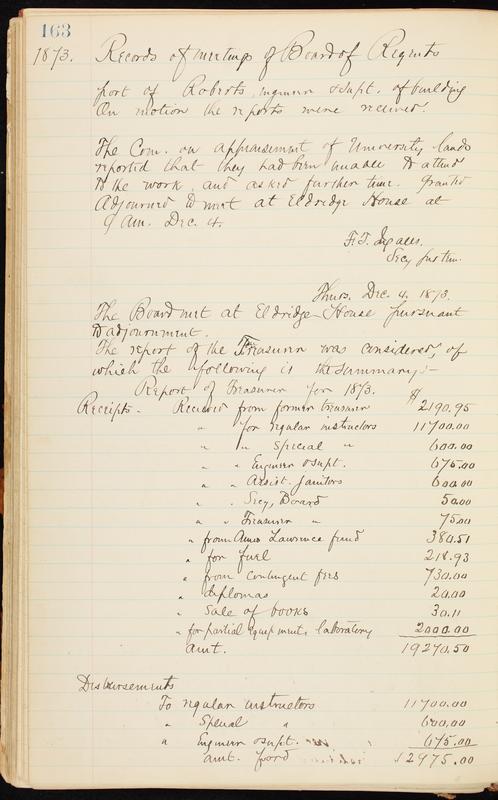 163
1873. Records of meetings of Board of Regents
port of Roberts, engineer & supt. of building
On motion the reports were received.
The Com. on appraisement of University lands
reported that they had been unable to attend
to the work, and asked further time. Granted
Adjourned to meet at Eldridge House at
9 Am. Dec. 4.
F. T. Ingalls.
Secy pro tem.
Thurs. Dec. 4, 1873.
The Board met at Eldridge House pursuant
to adjournment.
The report of the Treasurer was considered, of
which the following is the summary:-
Report of Treasurer for 1873. $
Receipts. Received from former treasurer 2190.95
" for regular instructors 11700.00
" " Special " 600.00
" " Engineer & supt. 675.00
" " Assist. Janitors 600.00
" " Secy, Board 50.00
" " Treasurer " 75.00
" from Amos Lawrence fund 380.51
" for fuel 218.93
" from contingent fees 730.00
" diplomas 20.00
" Sale of books 30.11
" for partial equipment, laboratory 2000.00
amt. 19270.50
Disbursements
To regular instructors 11700.00
" Special " 600.00
" Engineer & supt. 675.00
amt. ford 12975.00